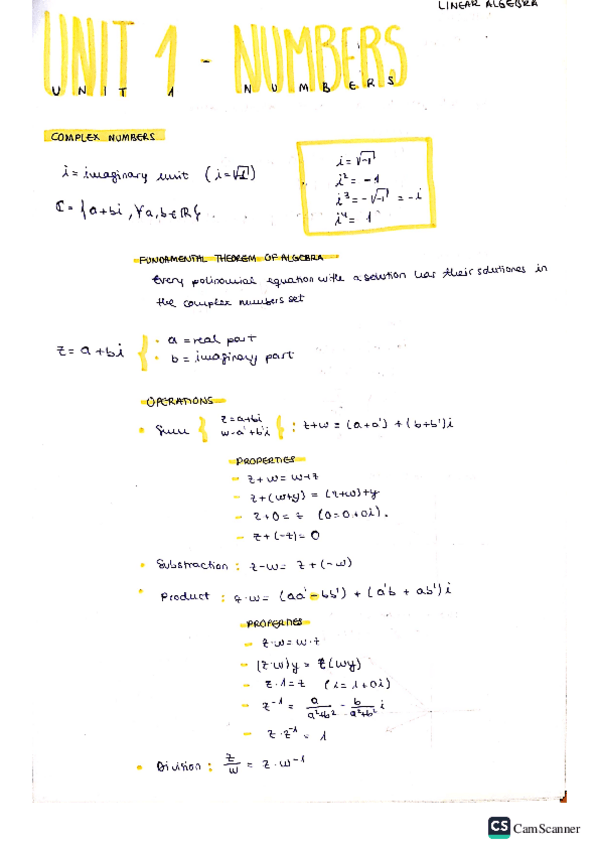 LINEAR ALGEBRA
UNIT 1 - NUMBERS
UNIT 1 NUMBERS
COMPLEX NUMBERS
i = imaginary unit (i=√-1)
ℂ = {a+bi, ∀a,b∈ℝ}.
i = √-1
i² = -1
i³ = -√-1 = -i
i⁴ = 1
FUNDAMENTAL THEOREM OF ALGEBRA
Every polinomial equation with a solution has their solutiones in
the complex numbers set
z = a+bi { · a = real part
· b = imaginary part
OPERATIONS
• Sum { z=a+bi
w=a'+b'i } : z+w = (a+a') + (b+b')i
PROPERTIES
- z+w = w+z
- z+(w+y) = (z+w)+y
- z+0 = z (0=0+0i).
- z+(-z) = 0
• Substraction : z-w = z+(-w)
• Product : z·w = (aa' - bb') + (a'b + ab')i
PROPERTIES
- z·w = w·z
- (z·w)y = z(wy)
- z·1 = z (1=1+0i)
- z⁻¹ = a/(a²+b²) - b/(a²+b²) i
- z·z⁻¹ = 1
• Division : z/w = z·w⁻¹
CS CamScanner